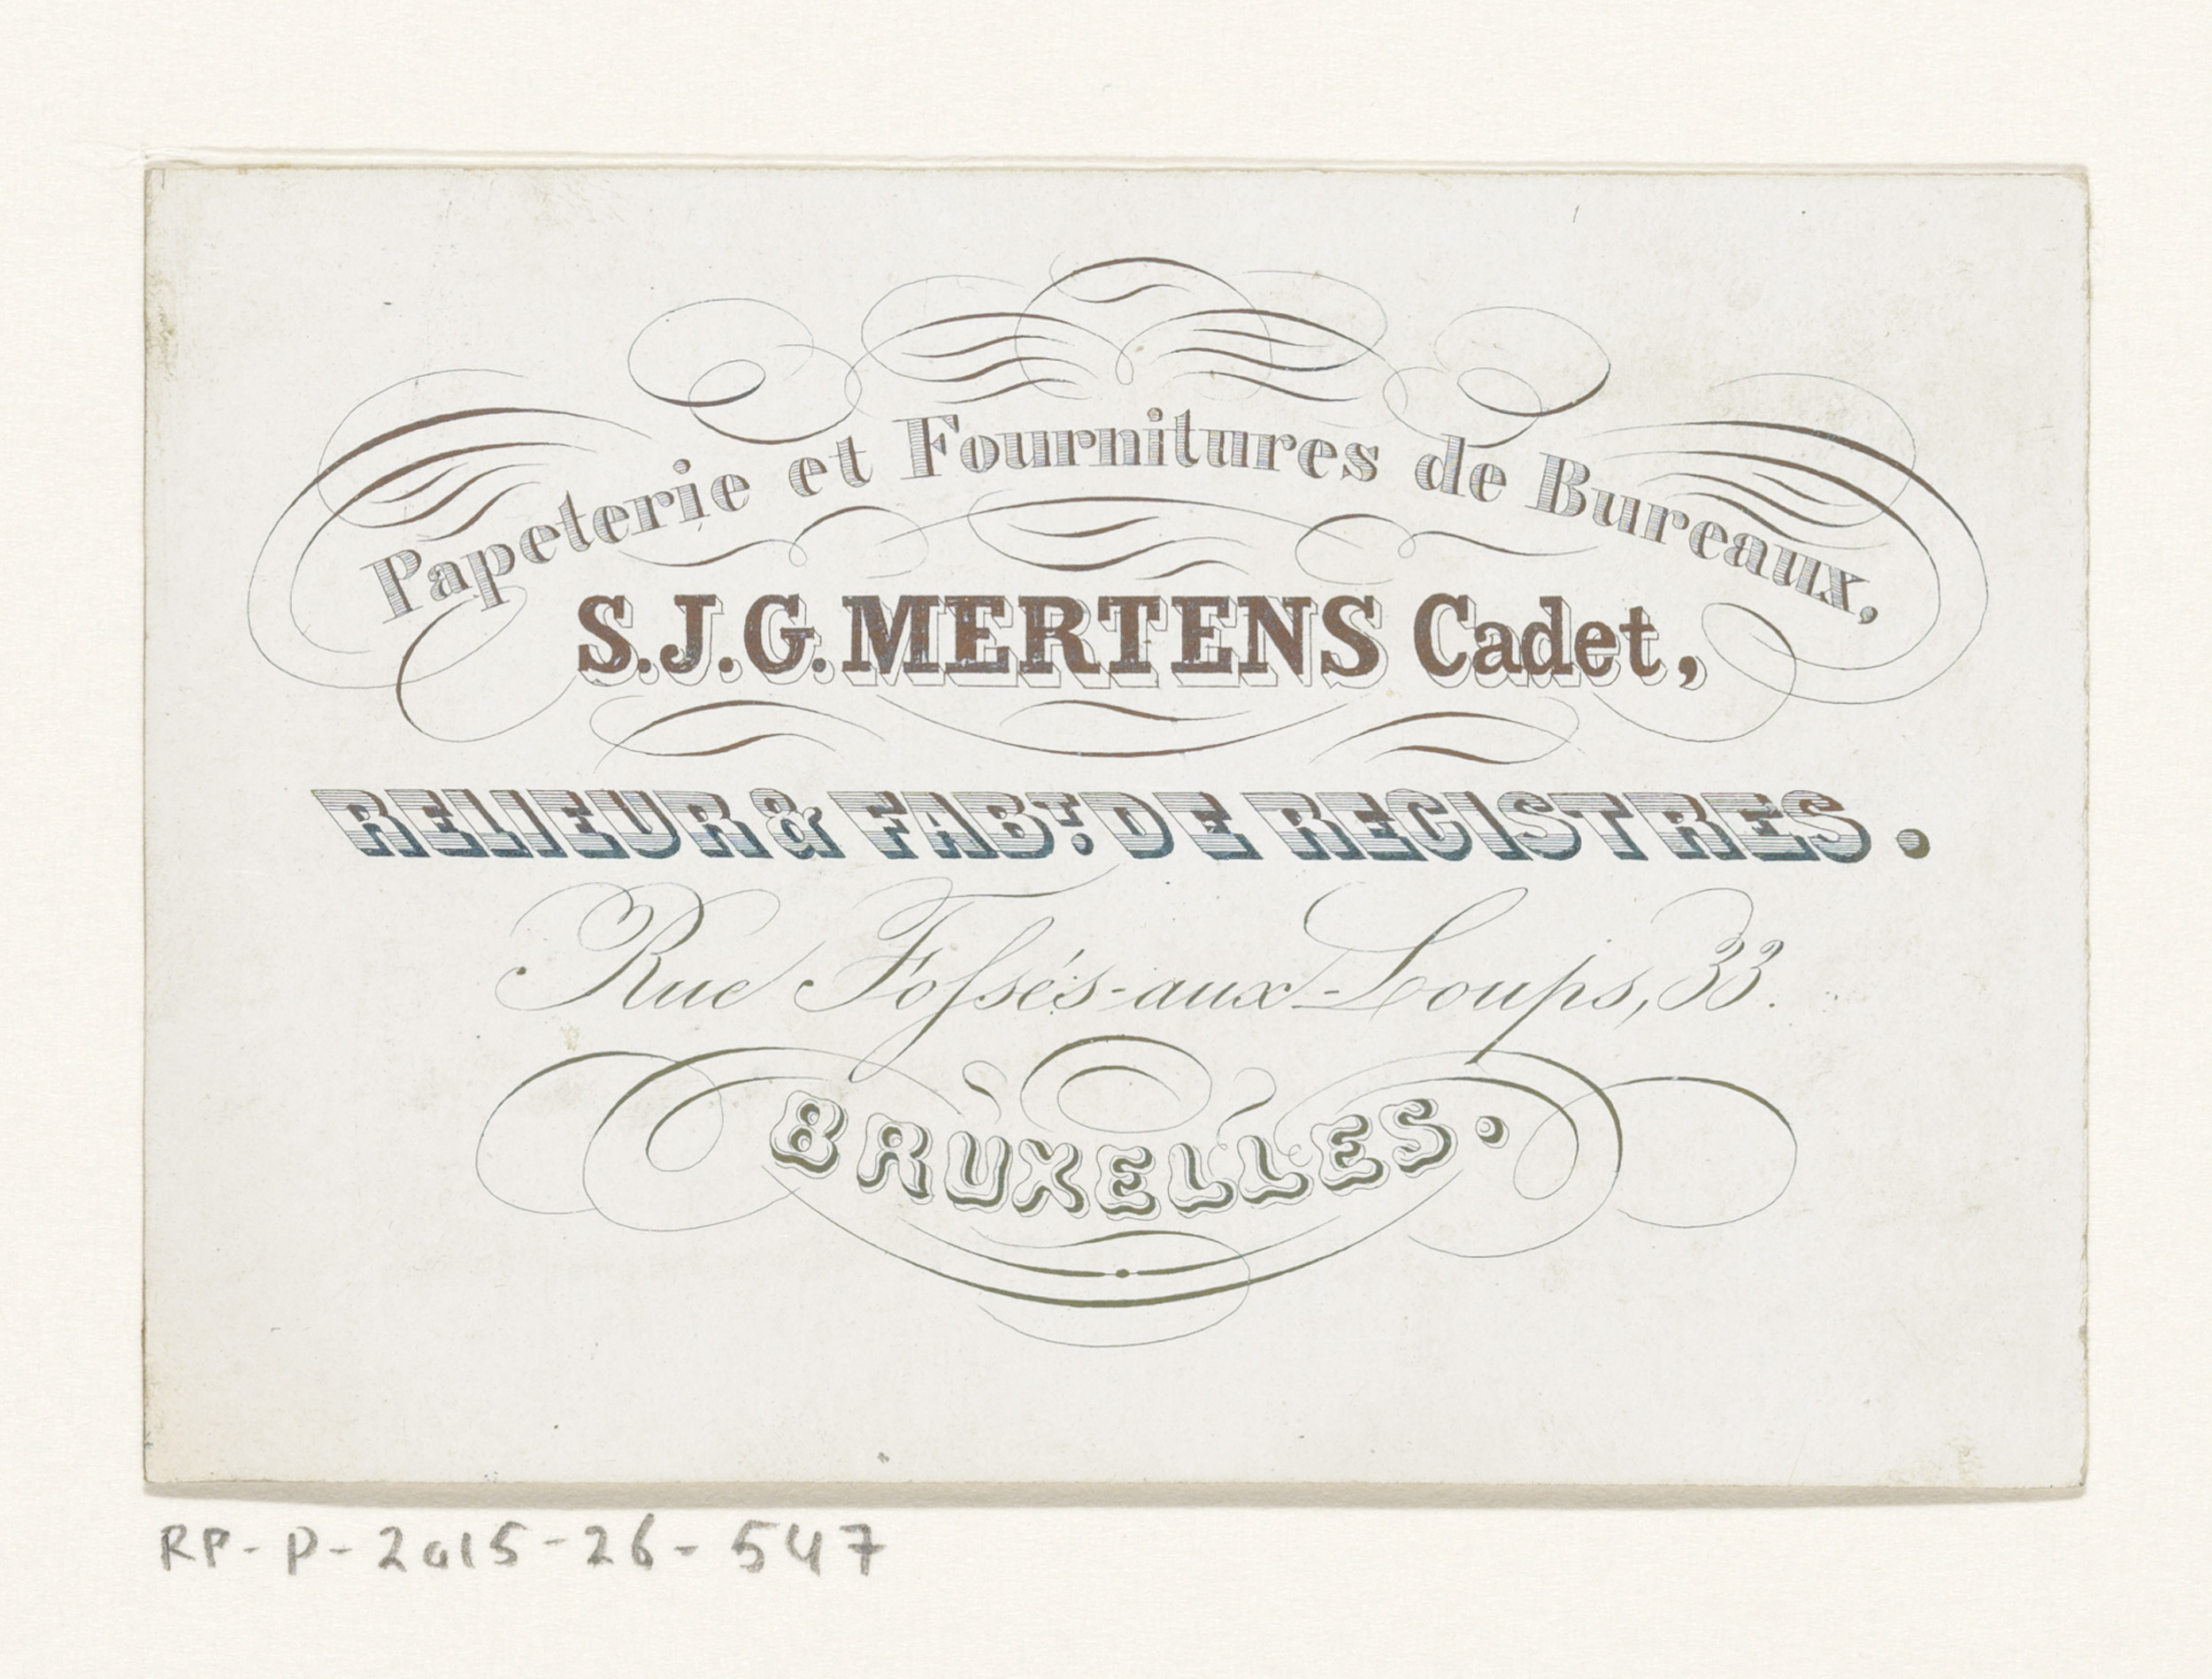 Papeterie et Fournitures de Bureaux,
S.J.G. MERTENS Cadet,
RELIEUR & FABT. DE REGISTRES.
Rue Fossés-aux-Loups, 33.
BRUXELLES.
RP-P-2015-26-547